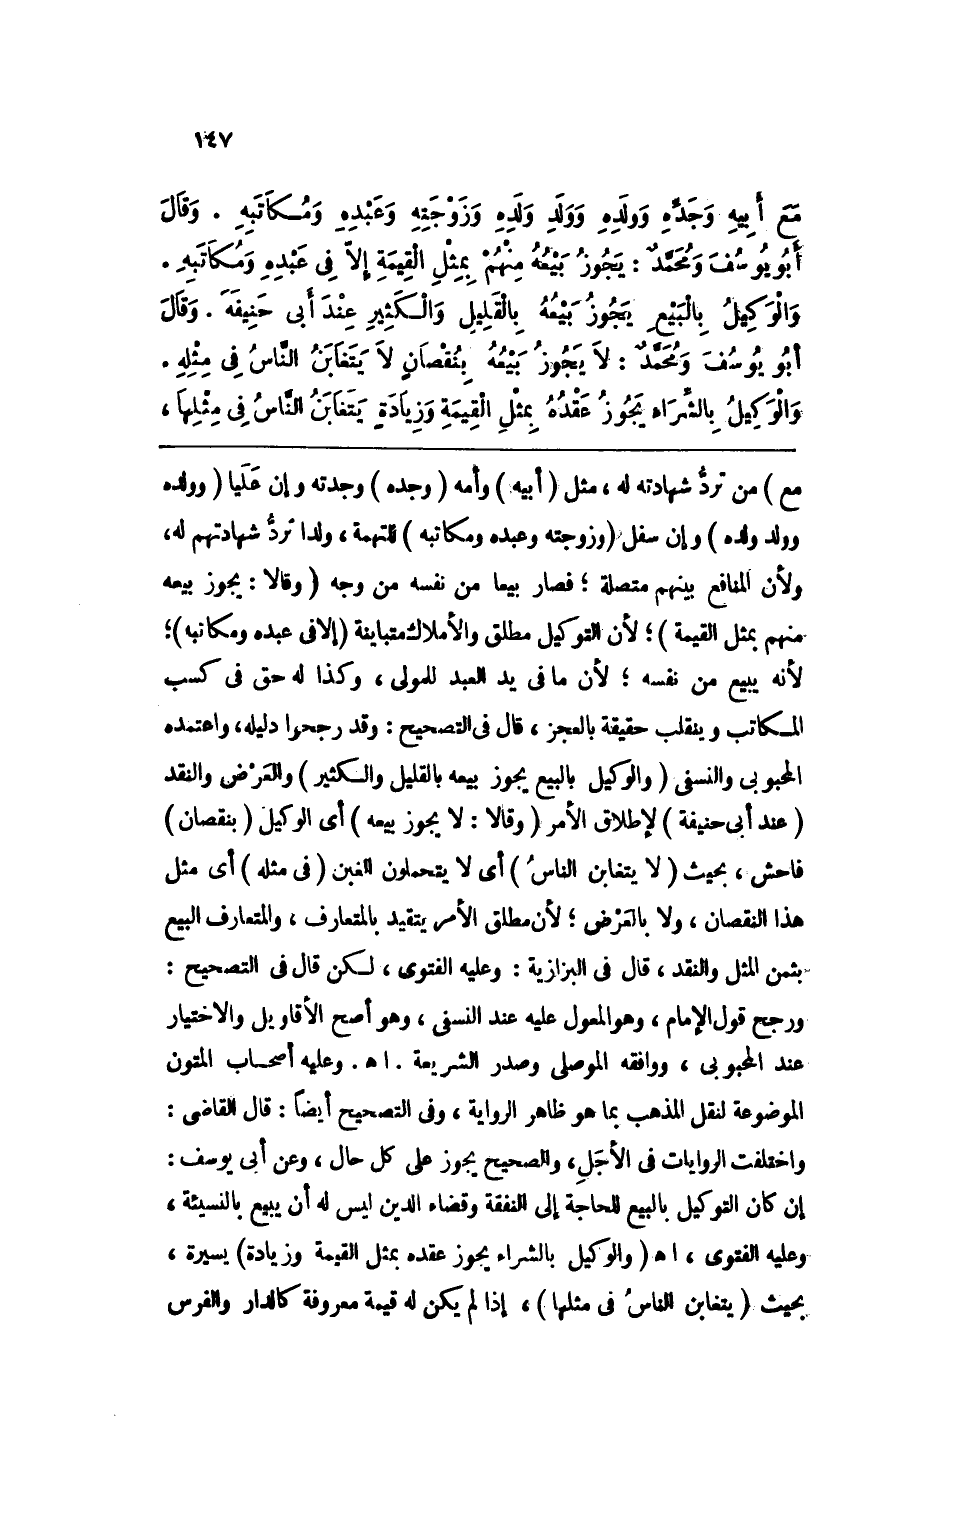 ١٤٧
مَعَ أَبِيهِ وَجَدِّهِ وَوَلَدِهِ وَوَلَدِ وَلَدِهِ وَزَوْجَتِهِ وَعَبْدِهِ وَمُكَاتَبِهِ . وَقَالَ
أَبُو يُوسُفَ وَمُحَمَّدٌ : يَجُوزُ بَيْعُهُ مِنْهُمْ بِمِثْلِ الْقِيمَةِ إِلاَّ فِى عَبْدِهِ وَمُكَاتَبِهِ .
وَالْوَكِيلُ بِالْبَيْعِ يَجُوزُ بَيْعُهُ بِالْقَلِيلِ وَالْكَثِيرِ عِنْدَ أَبى حَنِيفَةَ . وَقَالَ
أَبُو يُوسُفَ وَمُحَمَّدٌ : لاَ يَجُوزُ بَيْعُهُ بِنُقْصَانٍ لاَ يَتَغَابَنُ النَّاسُ فِى مِثْلِهِ .
وَالْوَكِيلُ بِالشِّرَاءِ يَجُوزُ عَقْدُهُ بِمثْلِ الْقِيمَةِ وَزِيَادَةٍ يَتَغَابَنُ النَّاسُ فِى مِثْلِهَا ،
مع ) من تردُّ شهادته له ، مثل ( أبيه ) وأمه ( وجده ) وجدته وإن عَلَيا ( وولده
وولد ولده ) وإن سفل (وزوجته وعبده ومكاتبه ) للتهمة ، ولذا تردُّ شهادتهم له،
ولأن المنافع بينهم متصلة ؛ فصار بيعا من نفسه من وجه ( وقالا : يجوز بيعه
منهم بمثل القيمة ) ؛ لأن التوكيل مطلق والأملاك متباينة (إلا فى عبده ومكاتبه )؛
لأنه يبيع من نفسه ؛ لأن ما فى يد العبد للمولى ، وكذا له حق فى كسب
المكاتب وينقلب حقيقة بالعجز ، قال فى التصحيح : وقد رجحوا دليله، واعتمده
المحبوبى والنسفى ( والوكيل بالبيع يجوز بيعه بالقليل والكثير ) والعَرْض والنقد
( عند أبى حنيفة ) لإطلاق الأمر ( وقالا : لا يجوز بيعه ) أى الوكيل ( بنقصان )
فاحش ، بحيث ( لا يتغابن الناسُ ) أى لا يتحملون الغبن ( فى مثله ) أى مثل
هذا النقصان ، ولا بالعَرْض ؛ لأن مطلق الأمر يتقيد بالمتعارف ، والمتعارف البيع
بثمن المثل والنقد ، قال فى البزازية : وعليه الفتوى ، لكن قال فى التصحيح :
ورجح قول الإمام ، وهو المعول عليه عند النسفى ، وهو أصح الأقاويل والاختيار
عند المحبوبى ، ووافقه الموصلى وصدر الشريعة . ا ه . وعليه أصحاب المتون
الموضوعة لنقل المذهب بما هو ظاهر الرواية ، وفى التصحيح أيضاً : قال القاضى :
واختلفت الروايات فى الأجَلِ، والصحيح يجوز على كل حال ، وعن أبى يوسف :
إن كان التوكيل بالبيع للحاجة إلى النفقة وقضاء الدين ليس له أن يبيع بالنسيئة ،
وعليه الفتوى ، ا ه ( والوكيل بالشراء يجوز عقده بمثل القيمة وزيادة) يسيرة ،
بحيث ( يتغابن الناسُ فى مثلها ) ، إذا لم يكن له قيمة معروفة كالدار والفرس